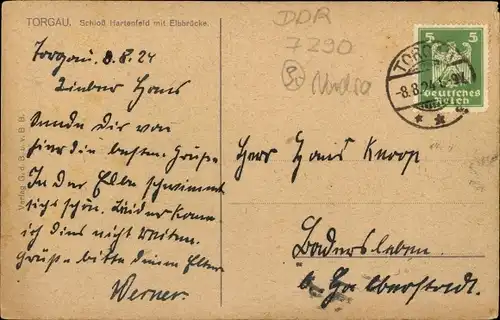 TORGAU. Schloß Hartenfeld mit Elbbrücke.
DDR
7290
Torgau. 8.8.24
TORGAU
-8.8.24. 5-6N.
5 5
Deutsches
Reich
Lieber Hans
Sende Dir von
hier die besten Grüße
In der Elbe schwimmt
sichs schön. Leider kann
ich dies nicht
Grüße bitte deine Eltern
Werner.
Verlag G. d. B. u. v. B. B.
Herr Hans Knoop
Badersleben
b. Halberstadt.